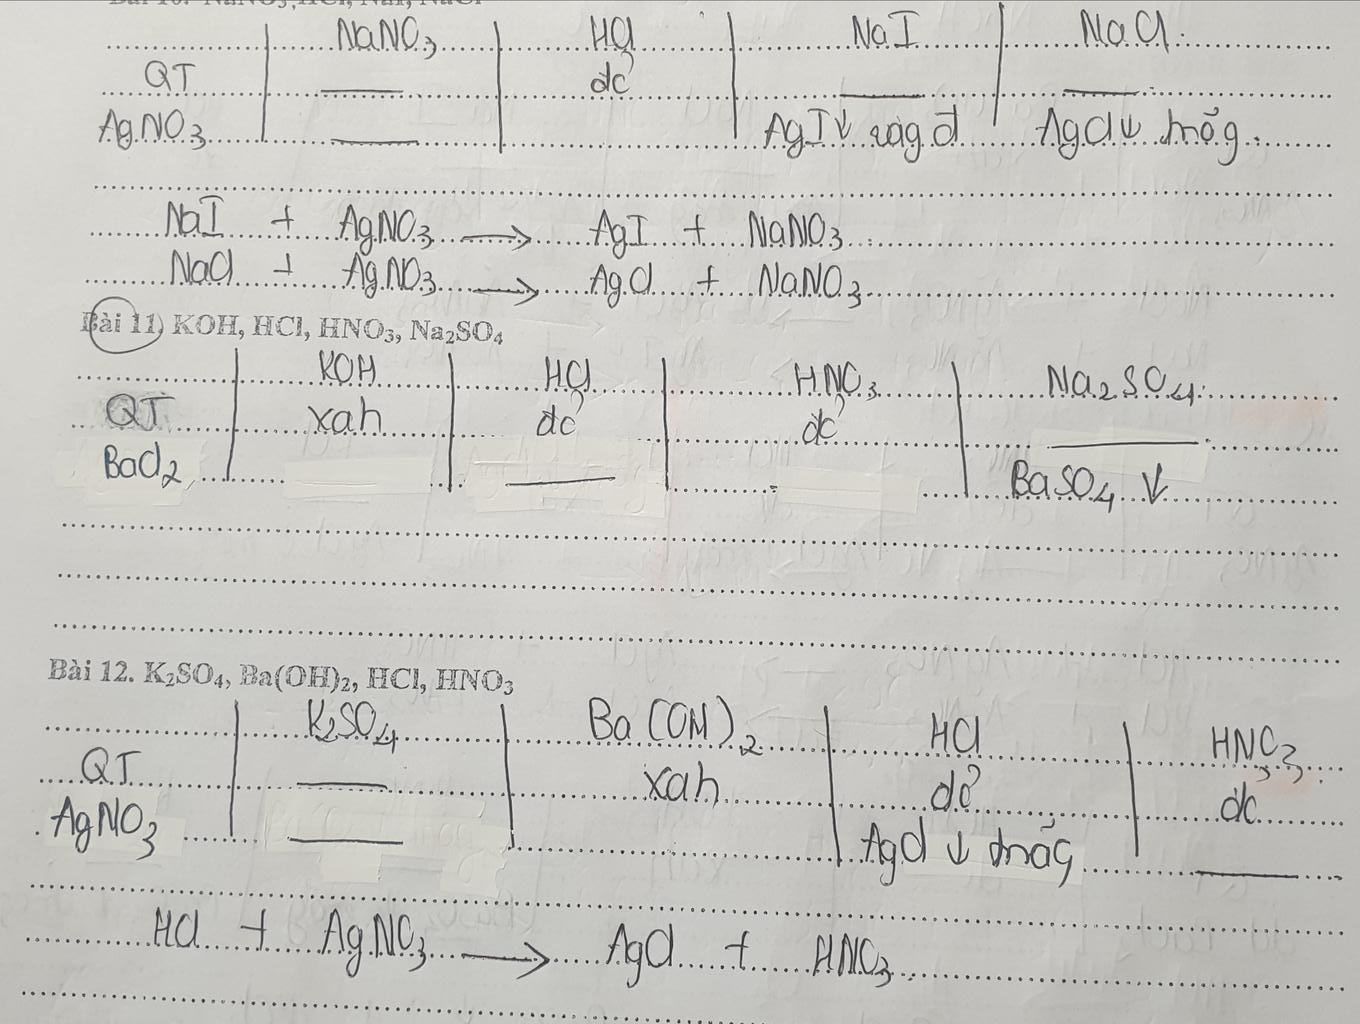 NaNO3 HCl NaI NaCl
QT đỏ
AgNO3 AgI↓ vàg đ AgCl↓ trắg
NaI + AgNO3 → AgI + NaNO3
NaCl + AgNO3 → AgCl + NaNO3
Bài 11) KOH, HCl, HNO3, Na2SO4
KOH HCl HNO3 Na2SO4
QT xah đỏ đỏ
BaCl2 BaSO4 ↓
Bài 12. K2SO4, Ba(OH)2, HCl, HNO3
K2SO4 Ba(OH)2 HCl HNO3
QT xah đỏ
AgNO3 AgCl ↓ trắg
HCl + AgNO3 → AgCl + HNO3